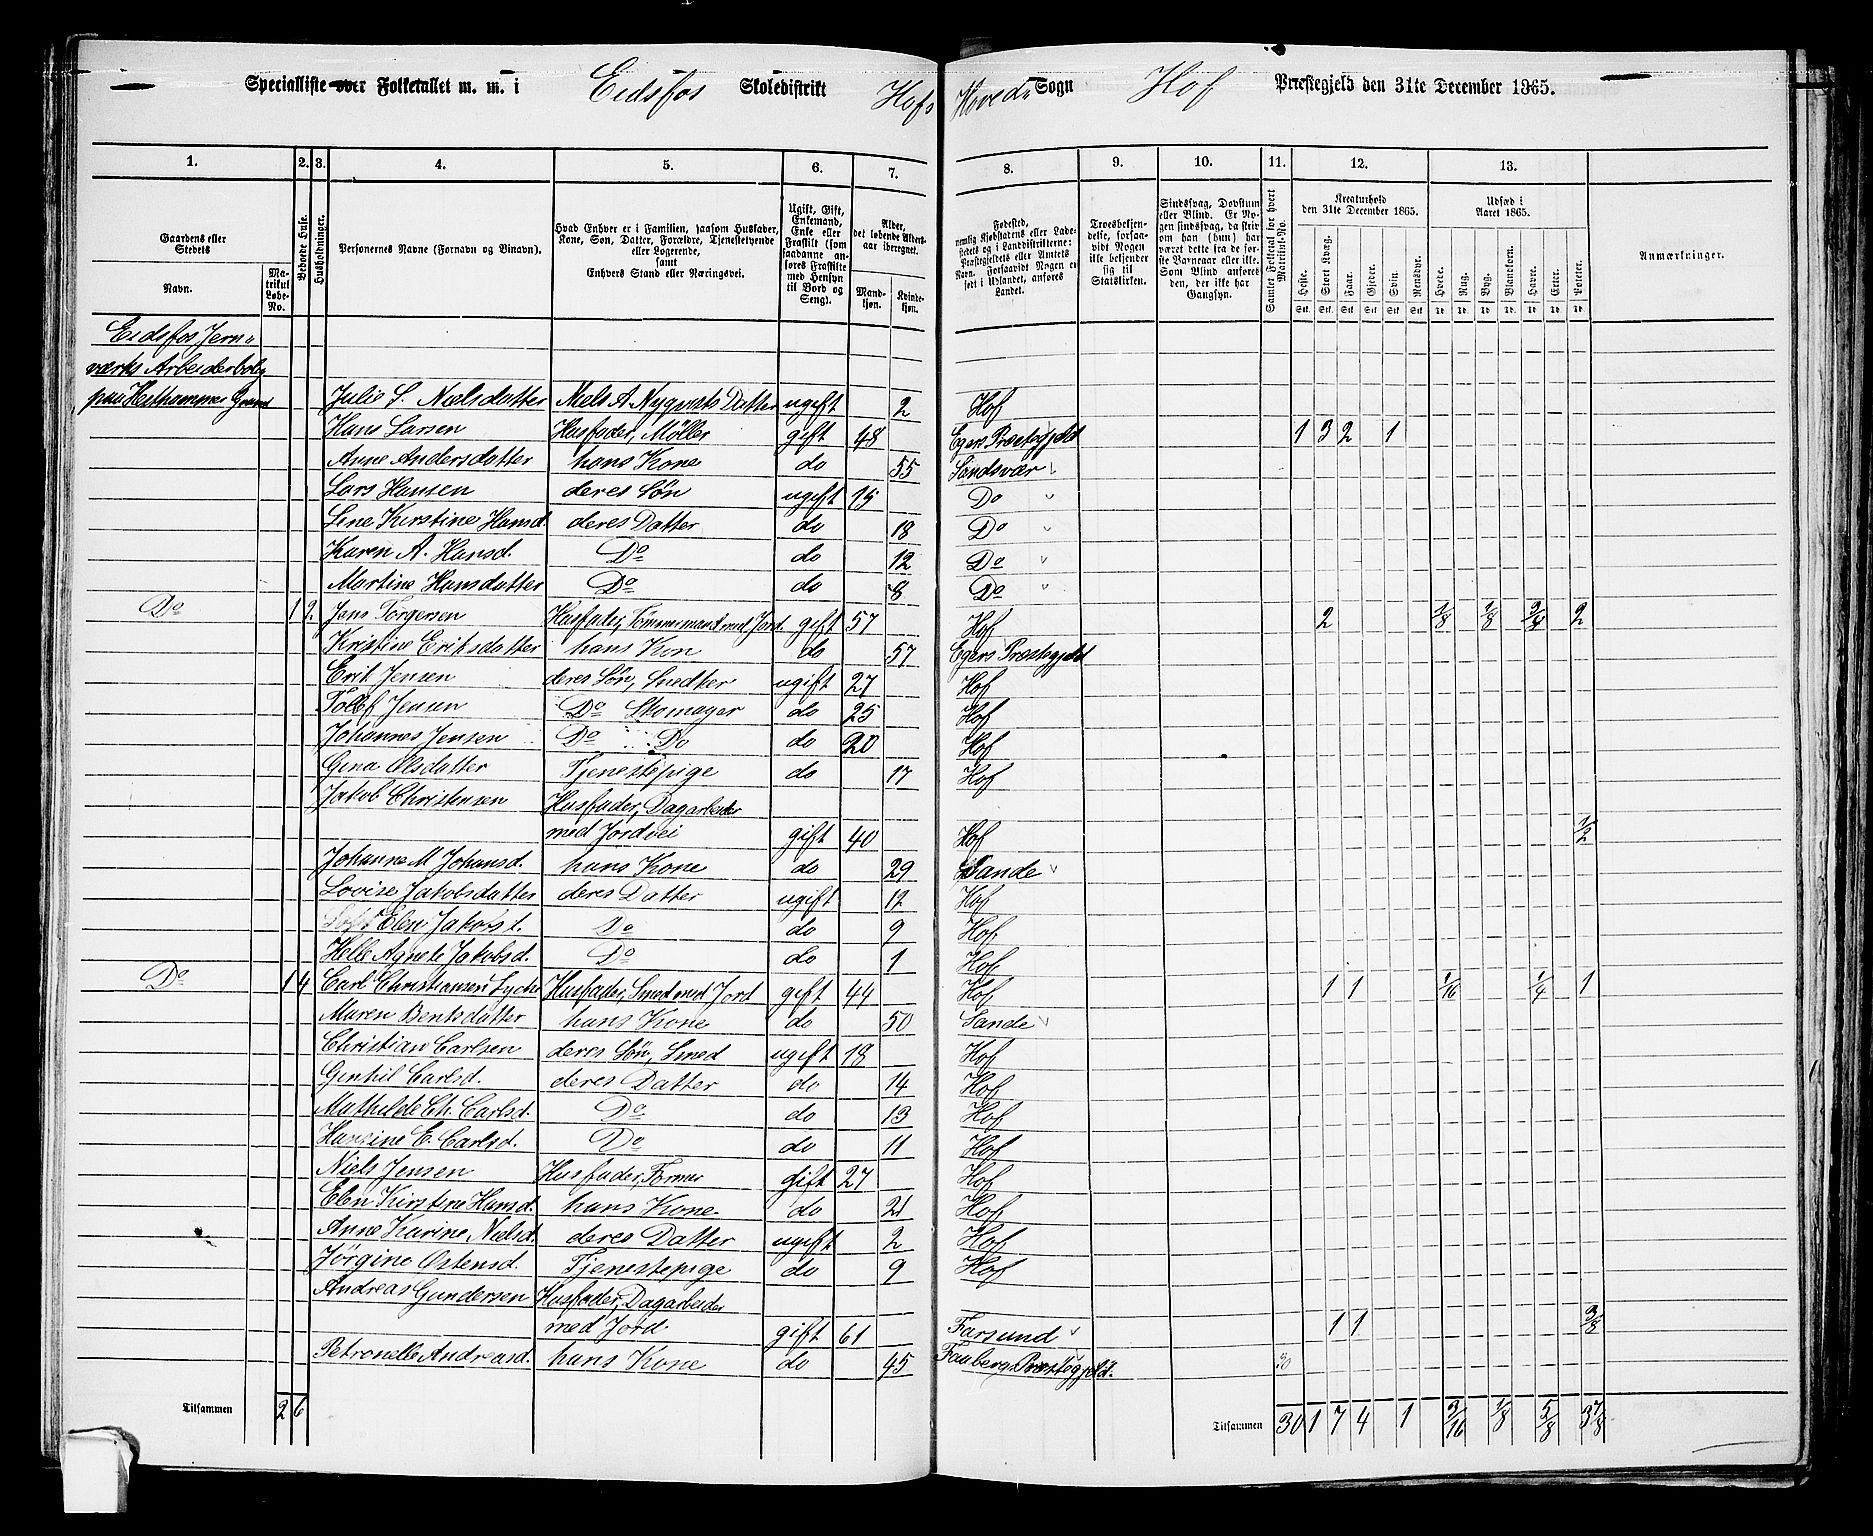 Specialliste over Folketallet m. m. i Eidsfos Skoledistrikt Hofs Hoved- Sogn Hof Præstegjeld den 31te December 1865.
1. 2. 3. 4. 5. 6. 7. 8. 9. 10. 11. 12. 13.
Gaardens eller Stedets Navn. Matrikul Løbe-No. Beboede Huse. Husholdninger. Personernes Navne (Fornavn og Binavn). Hvad Enhver er i Familien, saasom Husfader, Kone, Søn, Datter, Forældre, Tjenestetyende eller Logerende, samt Enhvers Stand eller Næringsvei. Ugift, Gift, Enkemand, Enke eller Fraskilt (som saadanne anføres Fraskilte med Hensyn til Bord og Seng). Alder, det løbende Alders-aar iberegnet. Mandkjøn. Kvindekjøn. Fødested, nemlig Kjøbstadens eller Ladestedets og i Landdistrikterne: Præstegjeldets eller Amtets Navn. Forsaavidt Nogen er født i Udlandet, anføres Landet. Troesbekjendelse, forsaavidt Nogen ikke bekjender sig til Statskirken. Sindssvag, Døvstum eller Blind. Er Nogen sindssvag, da skriv om han (hun) har været dette fra de første Barneaar eller ikke. Som Blind anføres den, der ikke har Gangsyn. Samlet Folketal for hvert Matrikul-No. Kreaturhold den 31te December 1865. Heste. Stort Kvæg. Faar. Gjeder. Svin. Rensdyr. Udsæd i Aaret 1865. Hvede. Rug. Byg. Blandkorn. Havre. Erter. Poteter. Anmærkninger.
Eidsfos Jern-
værks Arbeiderbolig
paa Hesthammer Grund Julie S. Nielsdatter Niels A Nyqvists Datter ugift 2 Hof
Hans Larsen Husfader, Møller gift 48 Egers Præstegjeld 1 3 2 1
Anne Andersdatter hans Kone do 55 Sandsvær
Lars Hansen deres Søn ugift 15 Do
Lene Kirstine Hansd. deres Datter do 18 Do
Karen A. Hansd. Do do 12 Do
Martine Hansdatter Do do 8 Do
Do 1 2 Jens Torgersen Husfader, Tømmermand med Jord gift 57 Hof 2 1/8 1/8 3/8 2
Kristine Eriksdatter hans Kon do 57 Egers Præstegjeld
Erik Jensen deres Søn, Smedter ugift 27 Hof
Tollef Jensen Do Skomager do 25 Hof
Johannes Jensen Do Do do 20 Hof
Gina Olsdatter Tjenestepige do 17 Hof
Jakob Christensen Husfader, Dagarbeider
med Jordvei gift 40 Hof 1/2
Johanne M Johansd. hans Kone do 29 Sande
Lovise Jakobsdatter deres Datter ugift 12 Hof
Elen Jakobsd. Do do 9 Hof
Helle Agnete Jakobsd. Do do 1 Hof
Do 1 4 Carl Christiansen Lyche Husfader, Smed med Jord gift 44 Hof 1 1 1/16 1/4 1
Maren Bentsdatter hans Kone do 50 Sande
Christian Carlsen deres Søn, Smed ugift 18 Hof
Gunhil Carlsd. deres Datter do 14 Hof
Mathilde Ch. Carlsd. Do do 13 Hof
Hansine E. Carlsd. Do do 11 Hof
Niels Jensen Husfader, Former gift 27 Hof
Elen Kirstine Hansd. hans Kone do 21 Hof
Anne Karine Nielsd. deres Datter ugift 2 Hof
Jørgine Ostensd. Tjenestepige do 9 Hof
Andreas Gundersen Husfader, Dagarbeider
med Jord gift 61 Farsund 1 1 3/8
Petronelle Andreasd. hans Kone do 45 Faabergs Præstegjeld. 30
Tilsammen 2 6 Tilsammen 30 1 7 4 1 3/16 1/8 5/8 3 7/8